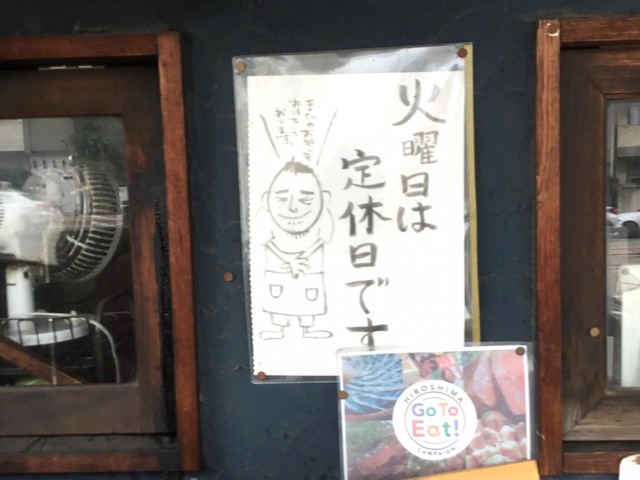 火曜日は
定休日です
またのお越しを
お待ちして
おります。
HIROSHIMA
Go To
Eat!
CAMPAIGN